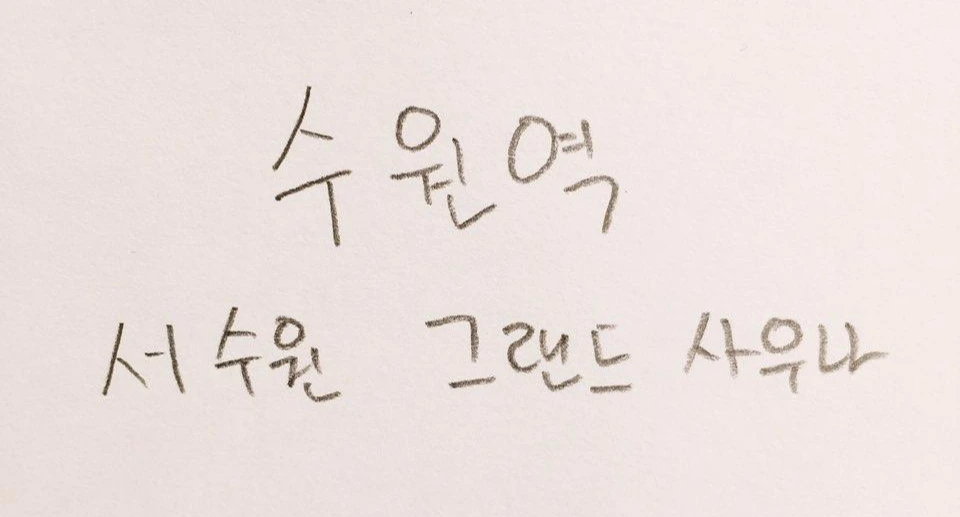 수원역
서수원 그랜드 사우나